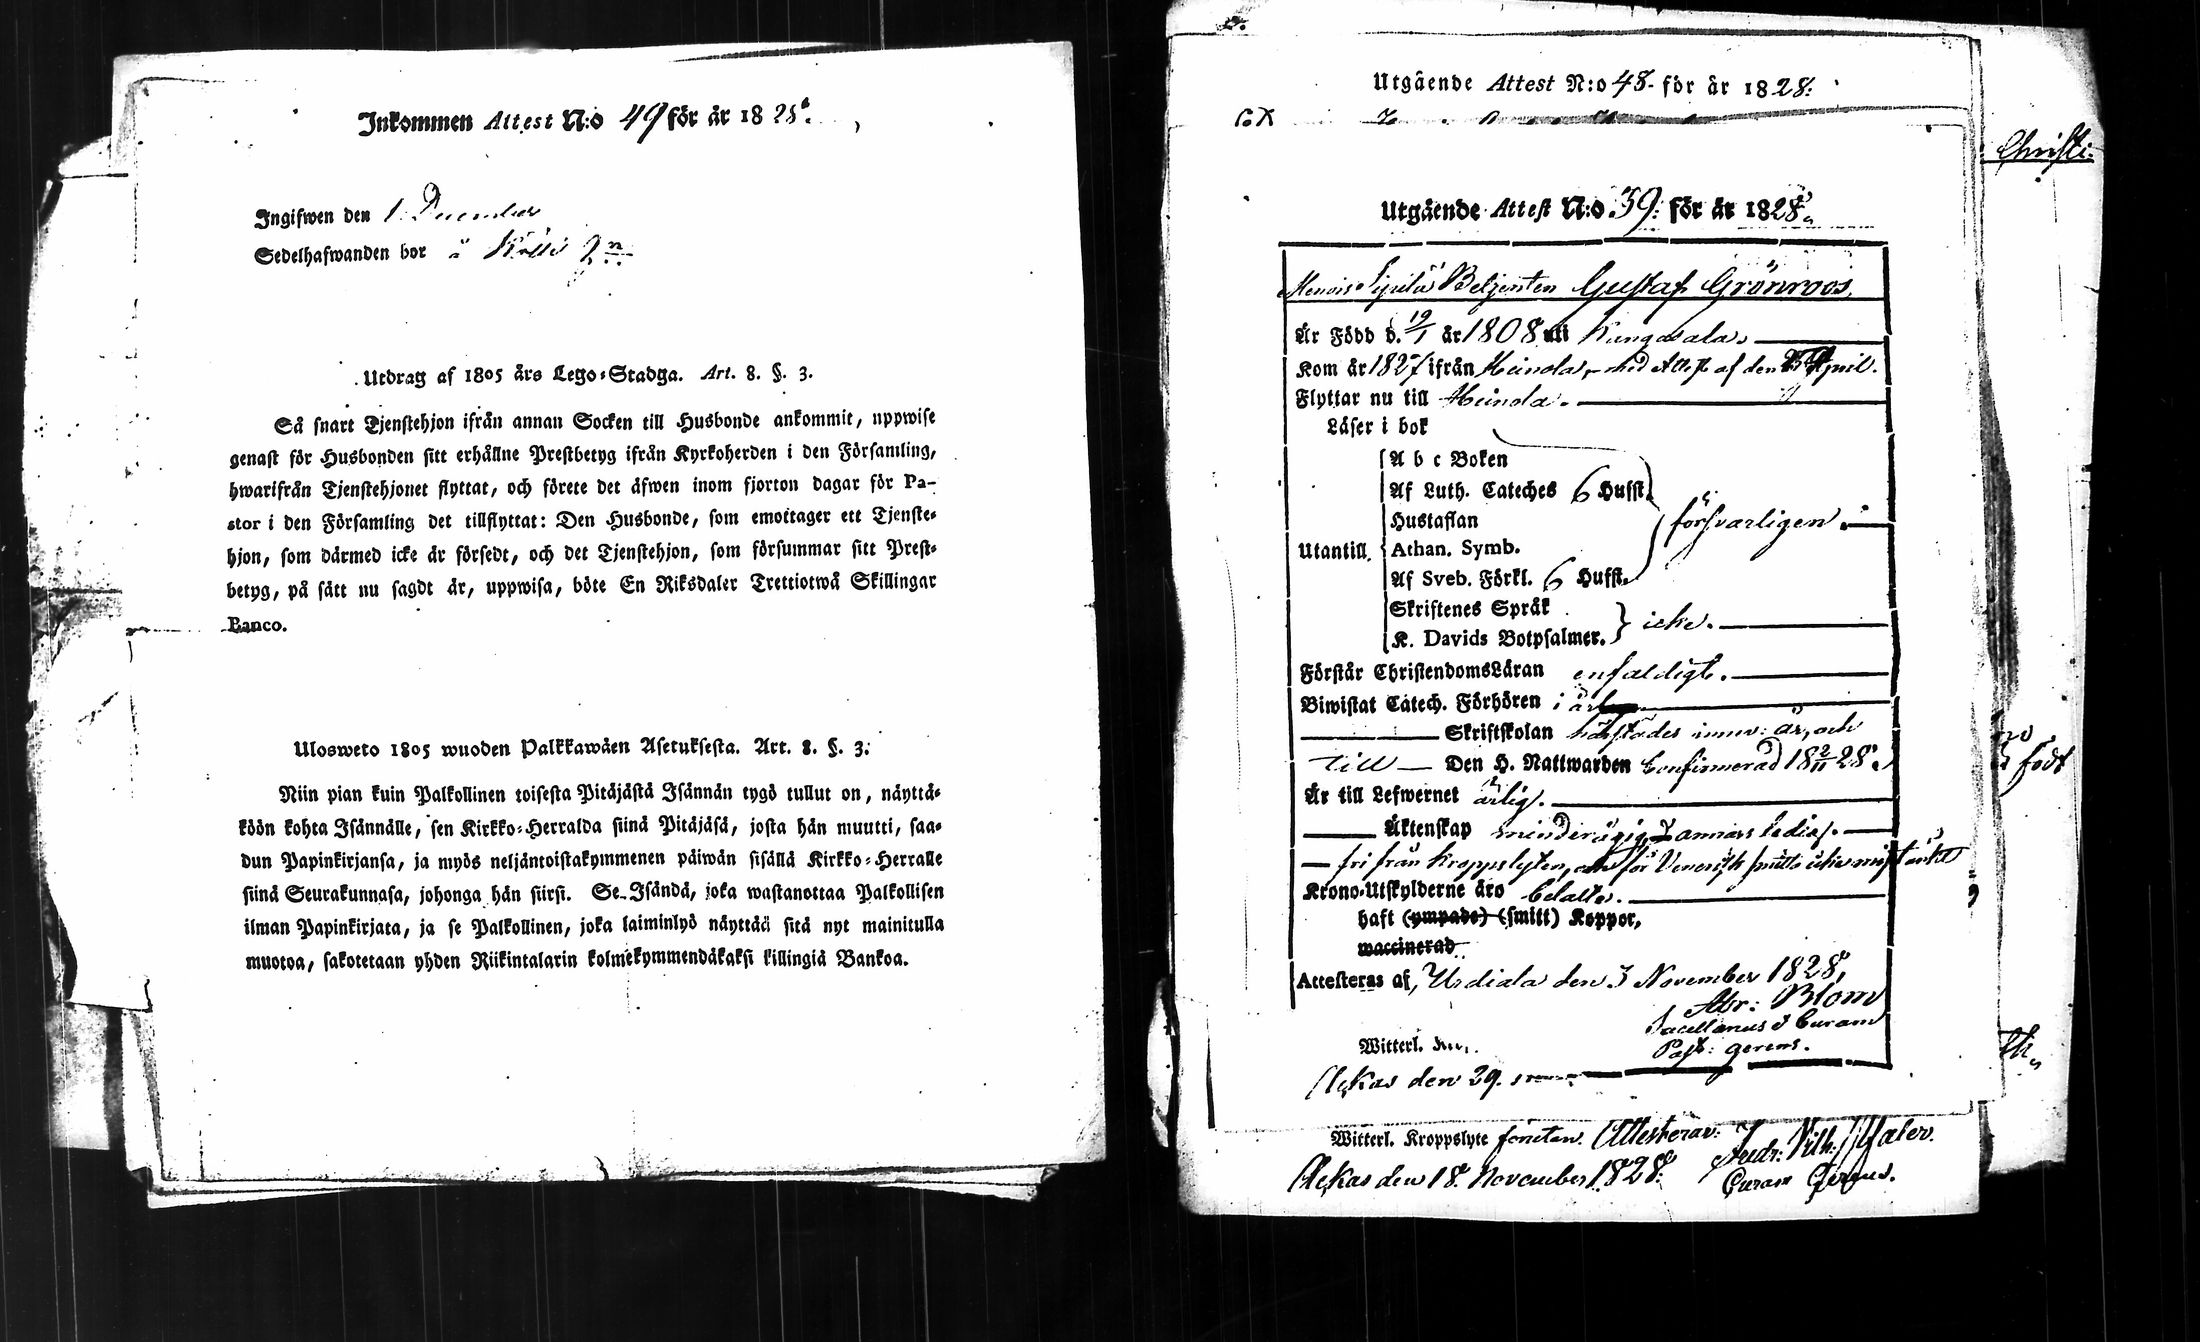 Inkommen Attest N:o 49 för år 1828.
Ingifwen den 1. December
Sedelhafwanden bor å
Utdrag af 1805 års Lego-Stadga. Art. 8. §. 3.
Så snart Tjenstehjon ifrån annan Socken till Husbonde ankommit, uppwise
genast för Husbonden sitt erhållne Prestbetyg ifrån Kyrkoherden i den Församling,
hwarifrån Tjenstehjonet flyttat, och förete det äfwen inom fjorton dagar för Pa-
stor i den Församling det tillflyttat: Den Husbonde, som emottager ett Tjenste-
hjon, som därmed icke är försedt, och det Tjenstehjon, som försummar sitt Prest-
betyg, på sätt nu sagdt är, uppwisa, böte En Riksdaler Trettiotwå Skillingar
Banco.
Ulosweto 1805 wuoden Palkkawäen Asetuksesta. Art. 8. §. 3.
Niin pian kuin Palkollinen toisesta Pitäjästä Isännän tygö tullut on, näyttä-
köön kohta Isännälle, sen Kirkko-Herralda siinä Pitäjäsä, josta hän muutti, saa-
dun Papinkirjansa, ja myös neljäntoistakymmenen päiwän sisällä Kirkko-Herralle
siinä Seurakunnasa, johonga hän siirsi. Se Isändä, joka wastanottaa Palkollisen
ilman Papinkirjata, ja se Palkollinen, joka laiminlyö näyttää sitä nyt mainitulla
muotoa, sakotetaan yhden Riikintalarin kolmekymmendäkaksi killingiä Bankoa.
Utgående Attest N:o 48 för år 1828.
Utgående Attest N:o 59. för år 1828.
Betjenten Gustaf Grönroos.
Är Född d. 19/1 år 1808 uti Kangasala.
Kom år 1827 ifrån Heinola, med Attest af den April.
Flyttar nu till Heinola.
Läser i bok
A b c Boken
Af Luth. Cateches 6 Hufst.
Hustaflan
försvarligen.
Utantill
Athan. Symb.
Af Sveb. Förkl. 6 Hufst.
Skriftenes Språk
icke.
K. Davids Botpsalmer.
Förstår ChristendomsLäran enfaldigt.
Biwistat Catech. Förhören i år
Skriftskolan härstädes innev: år, och
till Den H. Nattwarden Confirmerad 18 2/11 28.
Är till Lefwernet ärlig.
Äktenskap minderårig, annars ledig.
fri från kroppslyten, för Venerisk smitta icke misstänkt
Krono-Utskylderne äro betalte.
haft (ympade) (smitt) Koppor,
waccinerad
Attesteras af, Urdiala den 3 November 1828,
Abr: Blom
Sacellanus & Curam
Past: gerens.
Witterl.
den 29.
Witterl. Kroppslyte Attesterar:
den 18. November 1828.
Curam Gerens.
Christi.
född